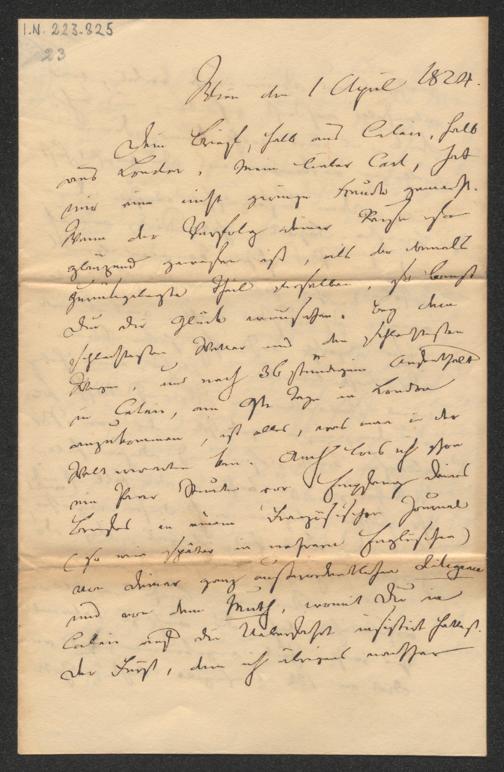 I.N. 223.825
23
Wien den 1 April 1824.
Dein Brief, halb aus Calais, halb
aus London, mein lieber Carl, hat
mir eine nicht geringe Freude gemacht.
Wenn der Verfolg deiner Reise so
glänzend gewesen ist, als der damals
zurückgelegte Theil derselben, so kannst
Du dir Glück wünschen. Bey dem
schlechtesten Wetter und den schlechtesten
Wegen, und nach 36 stündigem Aufenthalt
in Calais, am Tage in London
anzukommen, ist alles, was man in der
Welt erwarten kan. Auch las ich schon
ein Paar Stunden vor Empfang deines
Briefes in einem Französischen Journal
(so wie später in mehrern Englischen)
von deiner ganz ausserordentlichen Diligence
und von dem Muth, womit Du in
Calais auf die Ueberfahrt insistirt hattest.
Der Fürst, dem ich übrigens